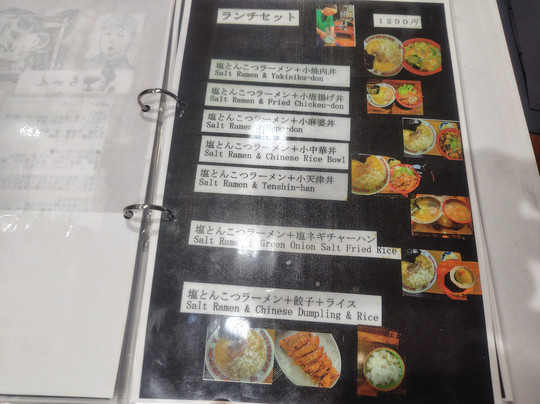 ランチセット
1200円
塩とんこつラーメン＋小焼肉丼
Salt Ramen & Yakiniku-don
塩とんこつラーメン＋小唐揚げ丼
Salt Ramen & Fried Chicken-don
塩とんこつラーメン＋小麻婆丼
Salt Ramen
塩とんこつラーメン＋小中華丼
Salt Ramen & Chinese Rice Bowl
塩とんこつラーメン＋小天津丼
Salt Ramen & Tenshin-han
塩とんこつラーメン＋塩ネギチャーハン
Salt Ramen & Green Onion Salt Fried Rice
塩とんこつラーメン＋餃子＋ライス
Salt Ramen & Chinese Dumpling & Rice